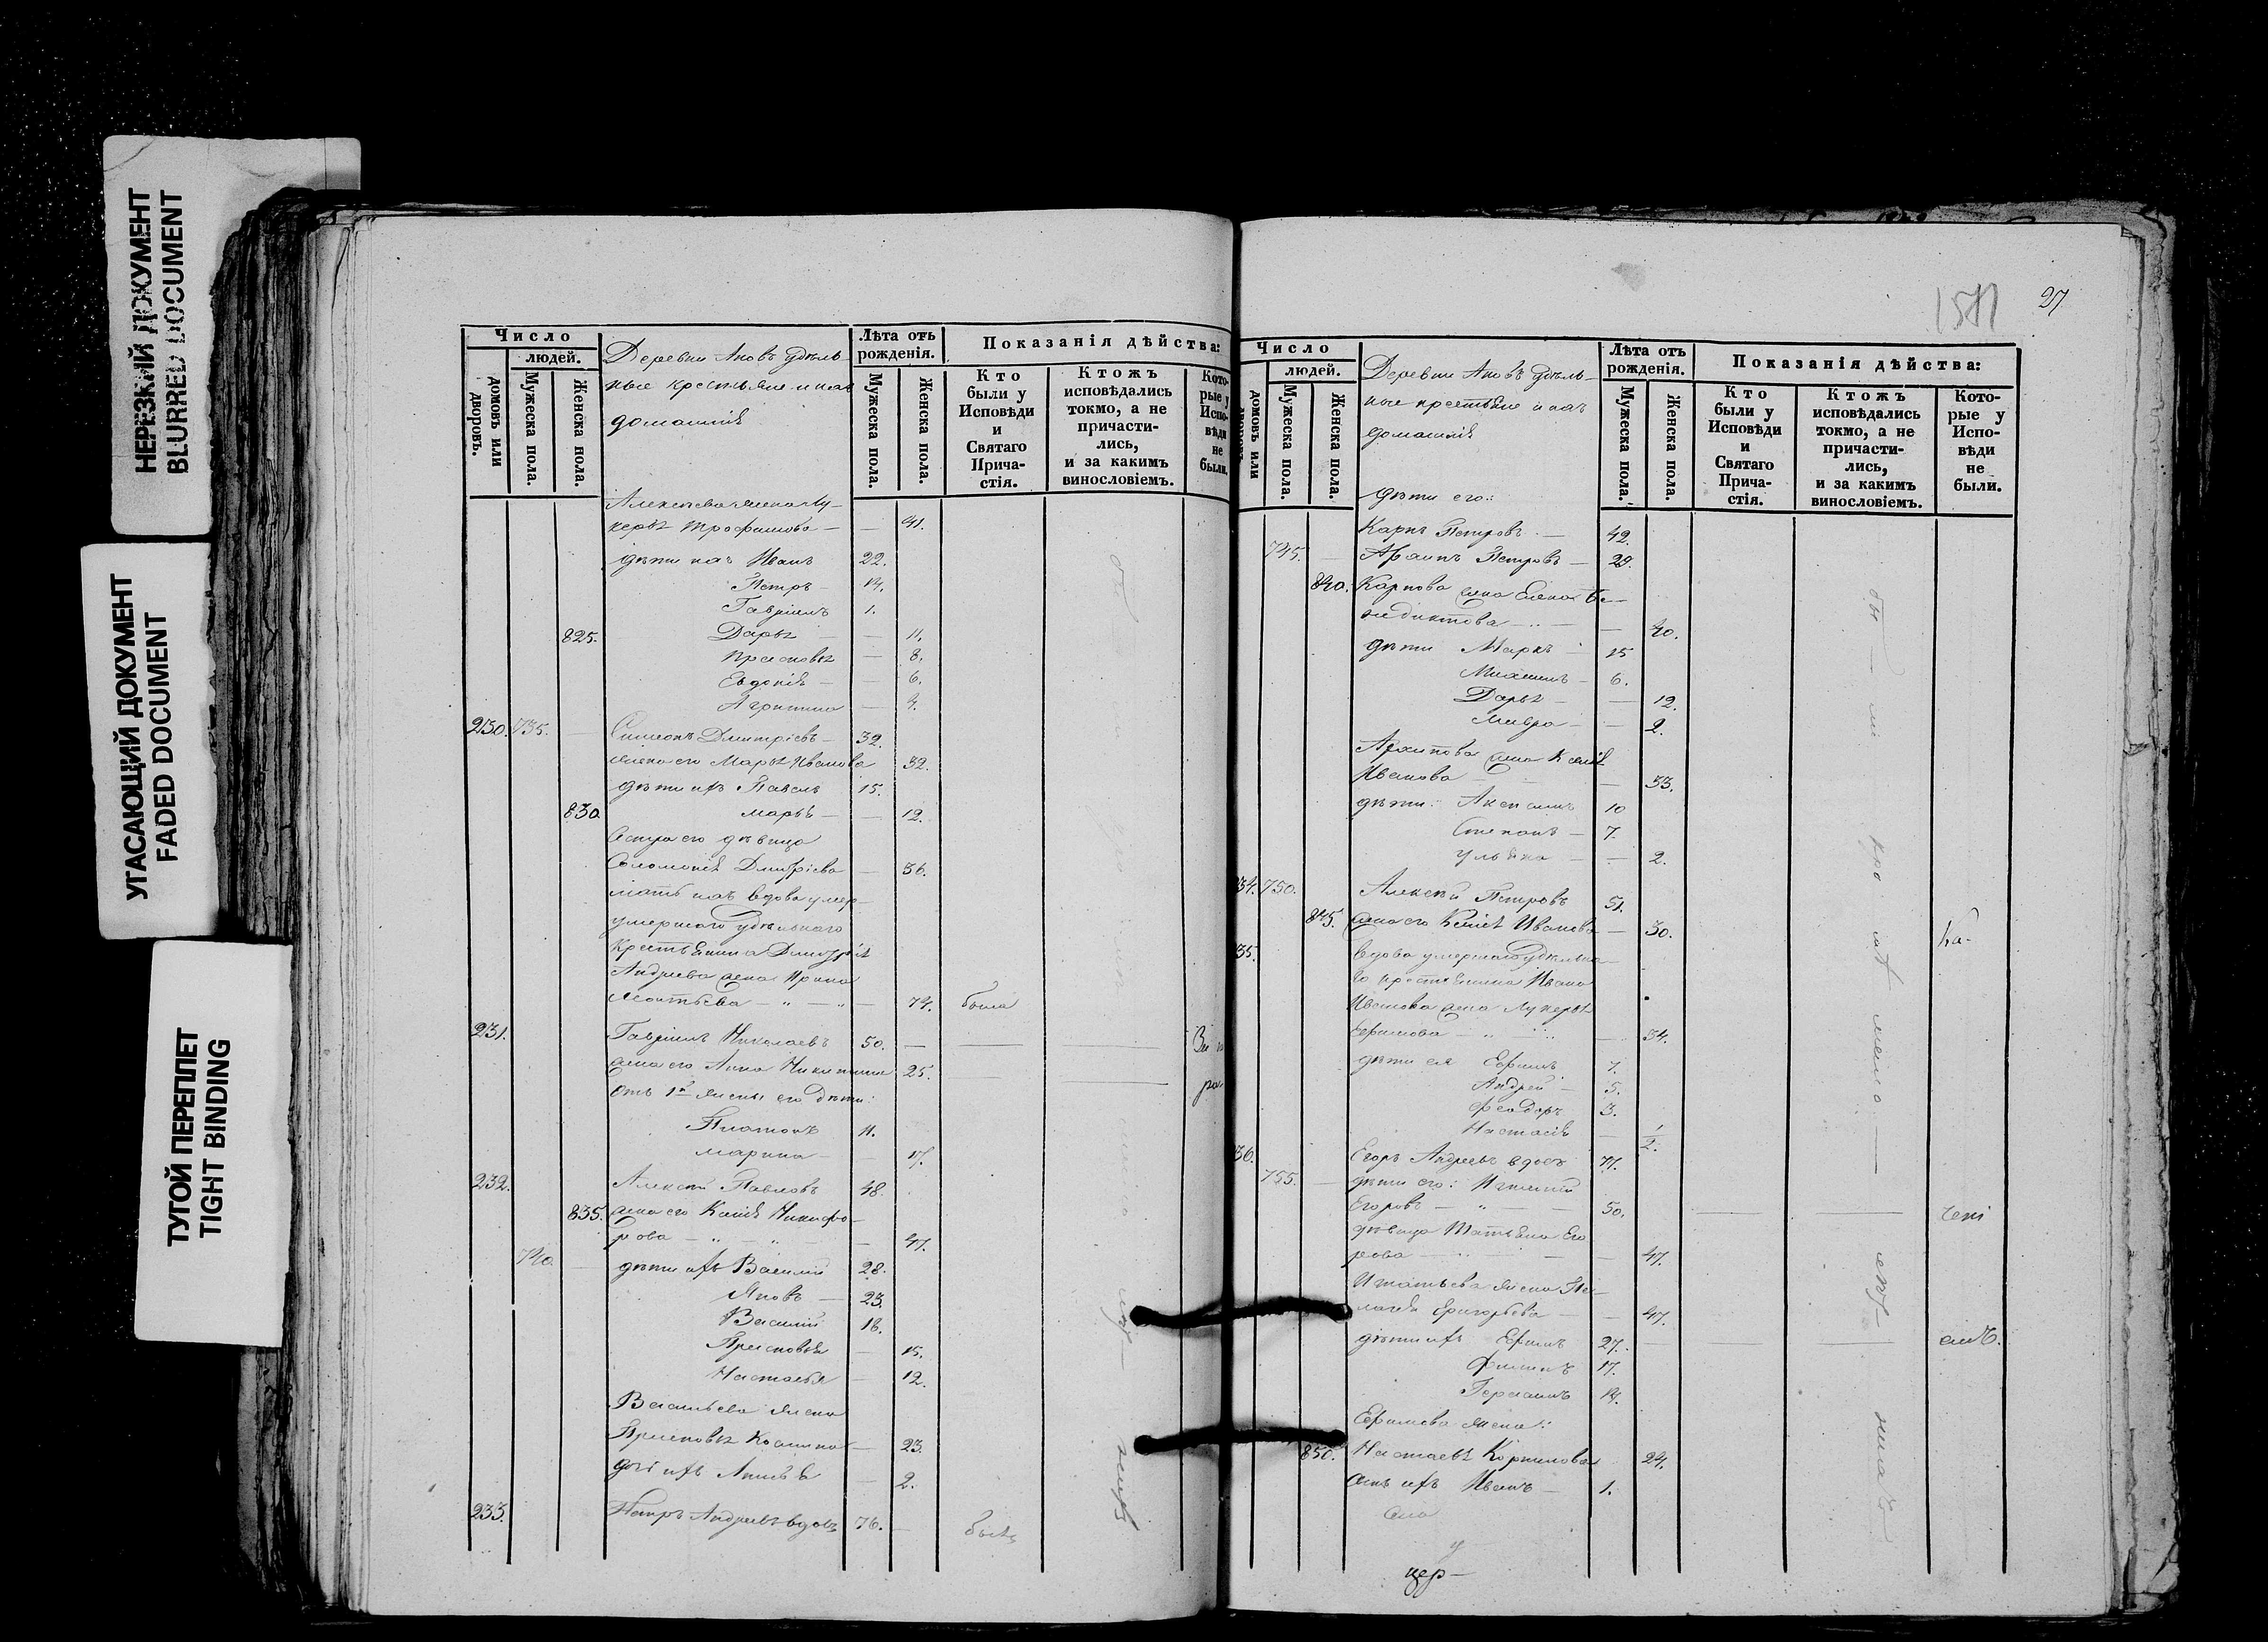 НЕРЕЗКИЙ ДОКУМЕНТ
BLURRED DOCUMENT
УГАСАЮЩИЙ ДОКУМЕНТ
FADED DOCUMENT
ТУГОЙ ПЕРЕПЛЕТ
TIGHT BINDING
Число
людей.
домовъ или дворовъ.
Мужеска пола.
Женска пола.
Деревни удѣль-
ные крестьяне и ихъ
домашніе
Лѣта отъ рожденія.
Мужеска пола.
Женска пола.
Показанія дѣйства:
Кто были у Исповѣди и Святаго Прича-стія.
Ктожъ исповѣдались токмо, а не причасти-лись, и за какимъ винословіемъ.
Кото-рые у Испо-вѣди не были.
Алексѣева жена Лу-
керья Трофимова — — 41.
дѣти ихъ Иванъ 22.
Петръ — 14.
Гавріилъ 1.
825. Дарья — — 11.
Прасковья — 8.
Евдокія — — 6.
Агрипина — 4.
230. 735. — Симеонъ Дмитріевъ — 32.
жена его Марья Иванова 32.
дѣти ихъ Павелъ 15.
830 Марья — — 12.
Сестра его дѣвица
Соломонія Дмитріева — 36.
мать ихъ вдова умер-
умершаго удѣльнаго
Крестьянина Дмитрія
Андреева жена Ирина
Леонтьева — „ — „ — 74. была
231. Гавріилъ Николаевъ 50. —
жена его Анна Никитина 25.
отъ 1й жены его дѣти:
Платонъ 11.
Марина — — 17.
232. Алексѣй Павловъ 48.
835. жена его Ксенія Никифо-
рова — „ — „ — 47.
740. — дѣти ихъ Василій 28.
Яковъ — 23.
Василій 18.
Прасковья — 15.
Настасья — 12.
Васильева жена
Прасковья Козмина — 23.
дочь ихъ — 2.
233. Петръ Андреевъ вдовъ 76. — былъ
1511
27
Число
людей.
домовъ или
Мужеска пола.
Женска пола.
Деревни удѣль-
ные крестьяне и ихъ
домашніе
Лѣта отъ рожденія.
Мужеска пола.
Женска пола.
Показанія дѣйства:
Кто были у Исповѣди и Святаго Прича-стія.
Ктожъ исповѣдались токмо, а не причасти-лись, и за какимъ винословіемъ.
Кото-рые у Испо-вѣди не были.
дѣти его:
Карпъ Петровъ — 42.
745. — Архипъ Петровъ — 29.
840. Карпова жена Елена Бе-
недиктова — „ — — 40.
дѣти Маркъ — 15
Михаилъ — 6.
Дарья — — 12.
Мавра — — 2.
Архипова жена Ксенія
Иванова — — 33.
дѣти: 10
Степанъ — 7.
Ульяна — — 2.
34. 750. Алексѣй Петровъ 51.
845. жена его Ксенія Иванова — 30.
35. Вдова умершаго удѣльна-
го крестьянина Ивана
Иванова жена Лукерья
Ефимова — „ — 34.
дѣти ея Ефимъ 7.
Андрей — 5.
Феодоръ 3.
Настасія — 1/2.
36. Егоръ Андреевъ вдовъ 77.
755. — дѣти его: Игнатій
Егоровъ — „ — 50.
дѣвица Татьяна Его
рова — — 47.
Игнатьева жена Пе-
лагея Григорьева — — 47.
дѣти ихъ Ефимъ 27.
Филипъ 17.
Герасимъ 14.
Ефимова жена:
850. Настасья Корнилова 24.
сынъ ихъ Иванъ — 1.
цер-